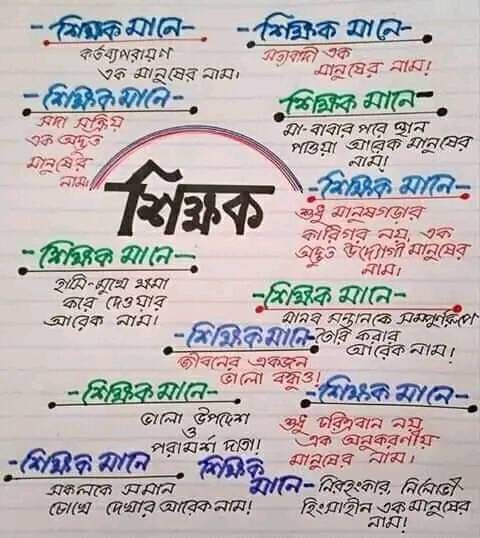 -শিক্ষক মানে-
কর্তব্যপরায়ণ
এক মানুষের নাম।
-শিক্ষক মানে-
সত্যবাদী এক
মানুষের নাম!
-শিক্ষক মানে-
সদা সক্রিয়
এক অদ্ভুত
মানুষের
নাম!
-শিক্ষক মানে-
মা-বাবার পরে স্থান
পাওয়া আরেক মানুষের
নাম!
শিক্ষক
-শিক্ষক মানে-
শুধু মানুষগড়ার
কারিগর নয়, এক
অদ্ভুত উদ্যোগী মানুষের
নাম।
-শিক্ষক মানে-
হাসি-মুখে ক্ষমা
করে দেওয়ার
আরেক নাম!
-শিক্ষক মানে-
মানব সন্তানকে সম্পূর্ণরূপে
তৈরি করার
আরেক নাম!
-শিক্ষক মানে-
জীবনের একজন
ভালো বন্ধুও!
-শিক্ষক মানে-
ভালো উপদেশ
ও
পরামর্শ দাতা!
-শিক্ষক মানে-
শুধু চরিত্রবান নয়,
এক অনুকরণীয়
মানুষের নাম!
-শিক্ষক মানে
সকলকে সমান
চোখে দেখার আরেক নাম!
শিক্ষক
মানে-
নিরহংকার, নির্লোভী
হিংসাহীন এক মানুষের
নাম!